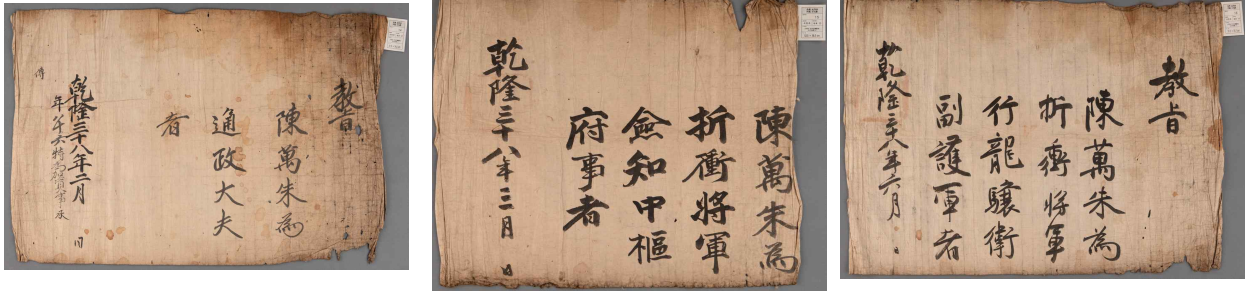 教旨
陳萬朱為
通政大夫
者
乾隆三十八年二月 日
陳萬朱為
折衝將軍
僉知中樞
府事者
乾隆三十八年三月 日
教旨
陳萬朱為
折衝將軍
行龍驤衛
副護軍者
乾隆三十八年六月 日